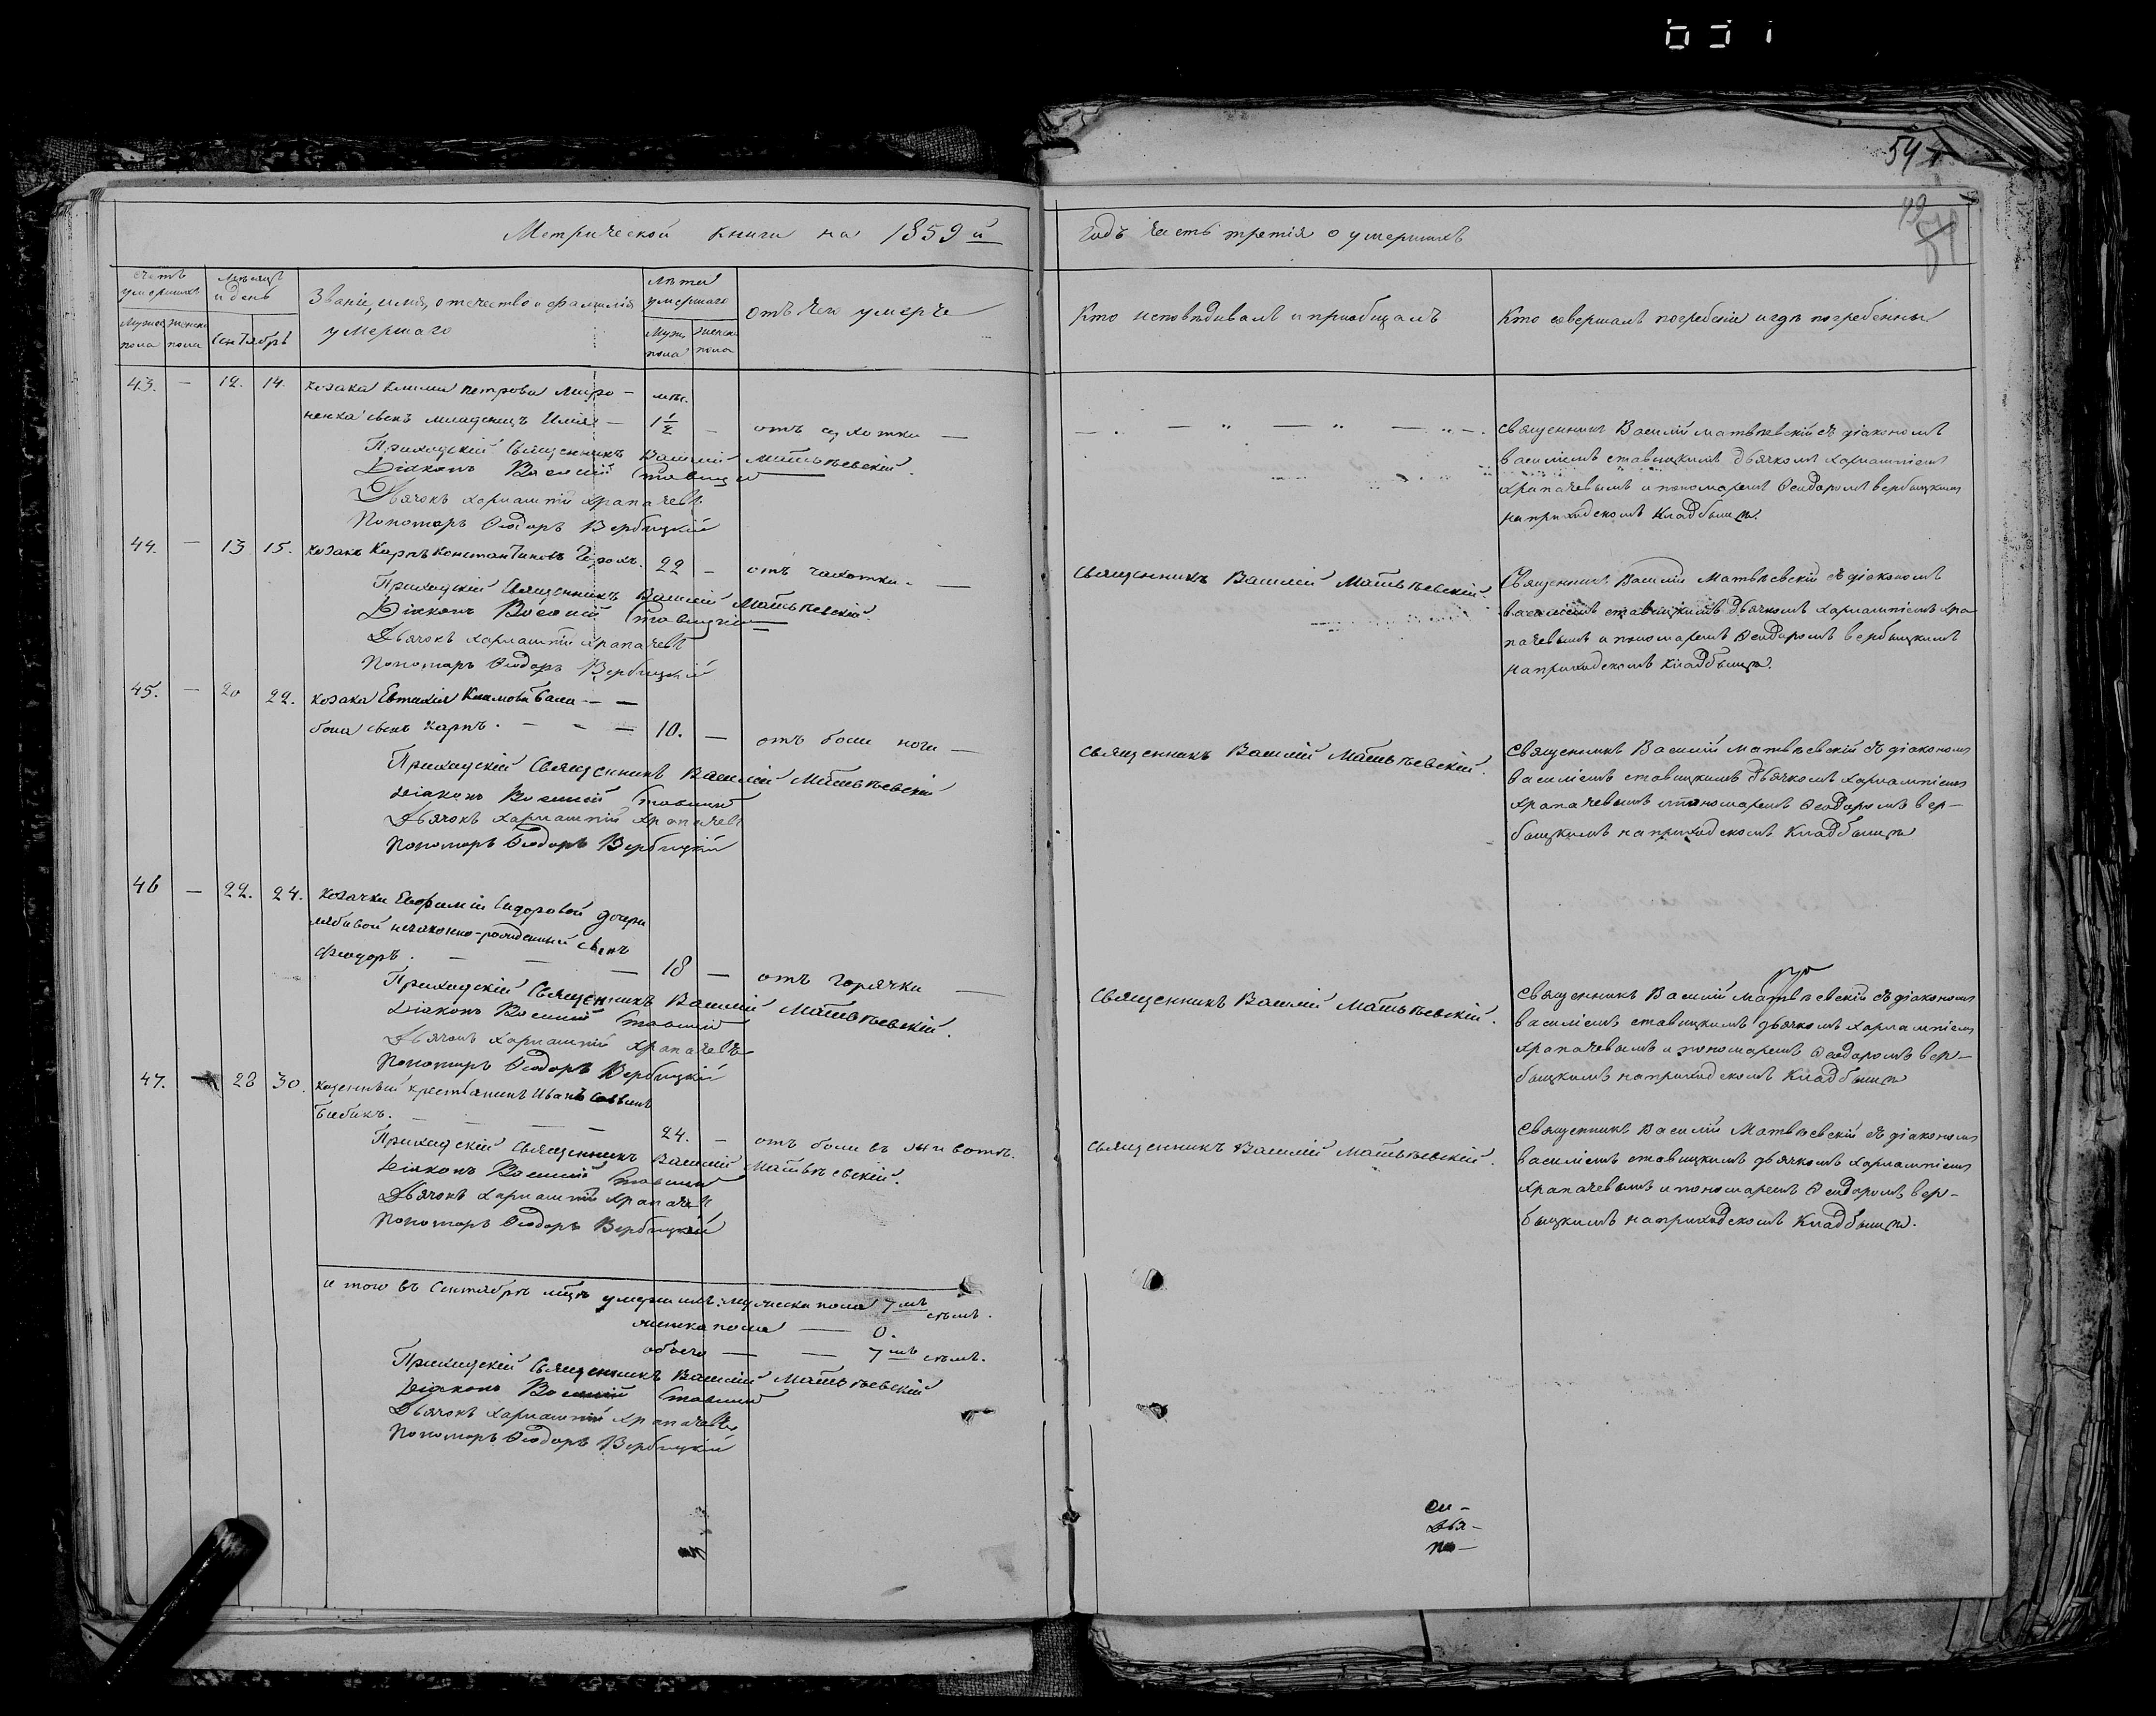 651
54
Метрической книги на 1859й
годъ часть третія о умершихъ
счетъ умершихъ
мѣсяцъ и день
Званіе, имя, отечество и фамилія умершаго
лѣта умершаго
отъ чего умерче
Кто исповѣдивалъ и приобщалъ
Кто совершалъ погребеніе и гдѣ погребенны
мужес пола
женск пола
Сентябрь
Муж. пола
женск. пола
43. — 12. 14. козака Климы Петрова Миро-
ненка сынъ младенецъ Илія — лѣт. 1½ — отъ сухотки —
Приходскій Священникъ Василій Матвѣевскій.
Діаконъ Василій Ставицкій
Дьячокъ Харлампій Храпачевъ
Пономарь Ѳеодоръ Вербицкій
— „ — „ — „ — „ —
Священникъ Василій Матвѣевскій съ діакономъ
Василіемъ Ставицкимъ дьячкомъ Харлампіемъ
Храпачевымъ и пономаремъ Ѳеодоромъ Вербицкимъ
на приходскомъ кладбищѣ.
44. — 13 15. козакъ Карпъ Константиновъ 22 — отъ чахотки. —
Приходскій Священникъ Василій Матвѣевскій.
Діаконъ Василій Ставицкій
Дьячокъ Харлампій Храпачевъ
Пономарь Ѳеодоръ Вербицкій
Священникъ Василій Матвѣевскій.
Священникъ Василій Матвѣевскій съ діакономъ
Василіемъ Ставицкимъ дьячкомъ Харлампіемъ Хра-
пачевымъ и пономаремъ Ѳеодоромъ Вербицкимъ
на приходскомъ кладбищѣ.
45. — 20 22. козака Евтихія Климова Бала- —
бона сынъ Карпъ. — — — 10. — отъ боли ноги —
Приходскій Священникъ Василій Матвѣевскій
Діаконъ Василій Ставицкій
Дьячокъ Харлампій Храпачевъ
Пономарь Ѳеодоръ Вербицкій
Священникъ Василій Матвѣевскій.
Священникъ Василій Матвѣевскій съ діакономъ
Василіемъ Ставицкимъ дьячкомъ Харлампіемъ
Храпачевымъ и пономаремъ Ѳеодоромъ Вер-
бицкимъ на приходскомъ кладбищѣ
46 — 22. 24. козачки Евфиміи Сидоровой дочери
незаконно-рожденный сынъ
Ѳеодоръ. — — — 18 — отъ горячки —
Приходскій Священникъ Василій Матвѣевскій.
Діаконъ Василій Ставицкій
Дьячокъ Харлампій Храпачевъ
Пономарь Ѳеодоръ Вербицкій
Священникъ Василій Матвѣевскій.
Священникъ Василій Матвѣевскій съ діакономъ
Василіемъ Ставицкимъ дьячкомъ Харлампіемъ
Храпачевымъ и пономаремъ Ѳеодоромъ Вер-
бицкимъ на приходскомъ кладбищѣ
47. — 28 30. казенный крестьянинъ Иванъ Саввинъ
Бибикъ. — — — 24. — отъ боли въ животѣ.
Приходскій Священникъ Василій Матвѣевскій.
Діаконъ Василій Ставицкій
Дьячокъ Харлампій Храпачевъ
Пономарь Ѳеодоръ Вербицкій
Священникъ Василій Матвѣевскій.
Священникъ Василій Матвѣевскій съ діакономъ
Василіемъ Ставицкимъ дьячкомъ Харлампіемъ
Храпачевымъ и пономаремъ Ѳеодоромъ Вер-
бицкимъ на приходскомъ кладбищѣ.
и того въ Сентябрѣ мцѣ умершихъ: мужеска пола 7мъ семъ.
женска пола — 0.
обоего — — 7мъ семъ.
Приходскій Священникъ Василій Матвѣевскій
Діаконъ Василій Ставицкій
Дьячокъ Харлампій Храпачевъ
Пономарь Ѳеодоръ Вербицкій
дья-
по-